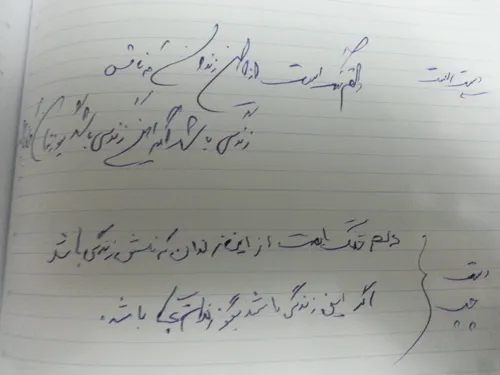 دست راست
دلم تنگ است از این زندان که نامش
زندگی باشد اگر این زندگی باشد
دست چپ
دلم تنگ است از این زندان که نامش زندگی باشد
اگر این زندگی باشد بگو زندان کجا باشد.